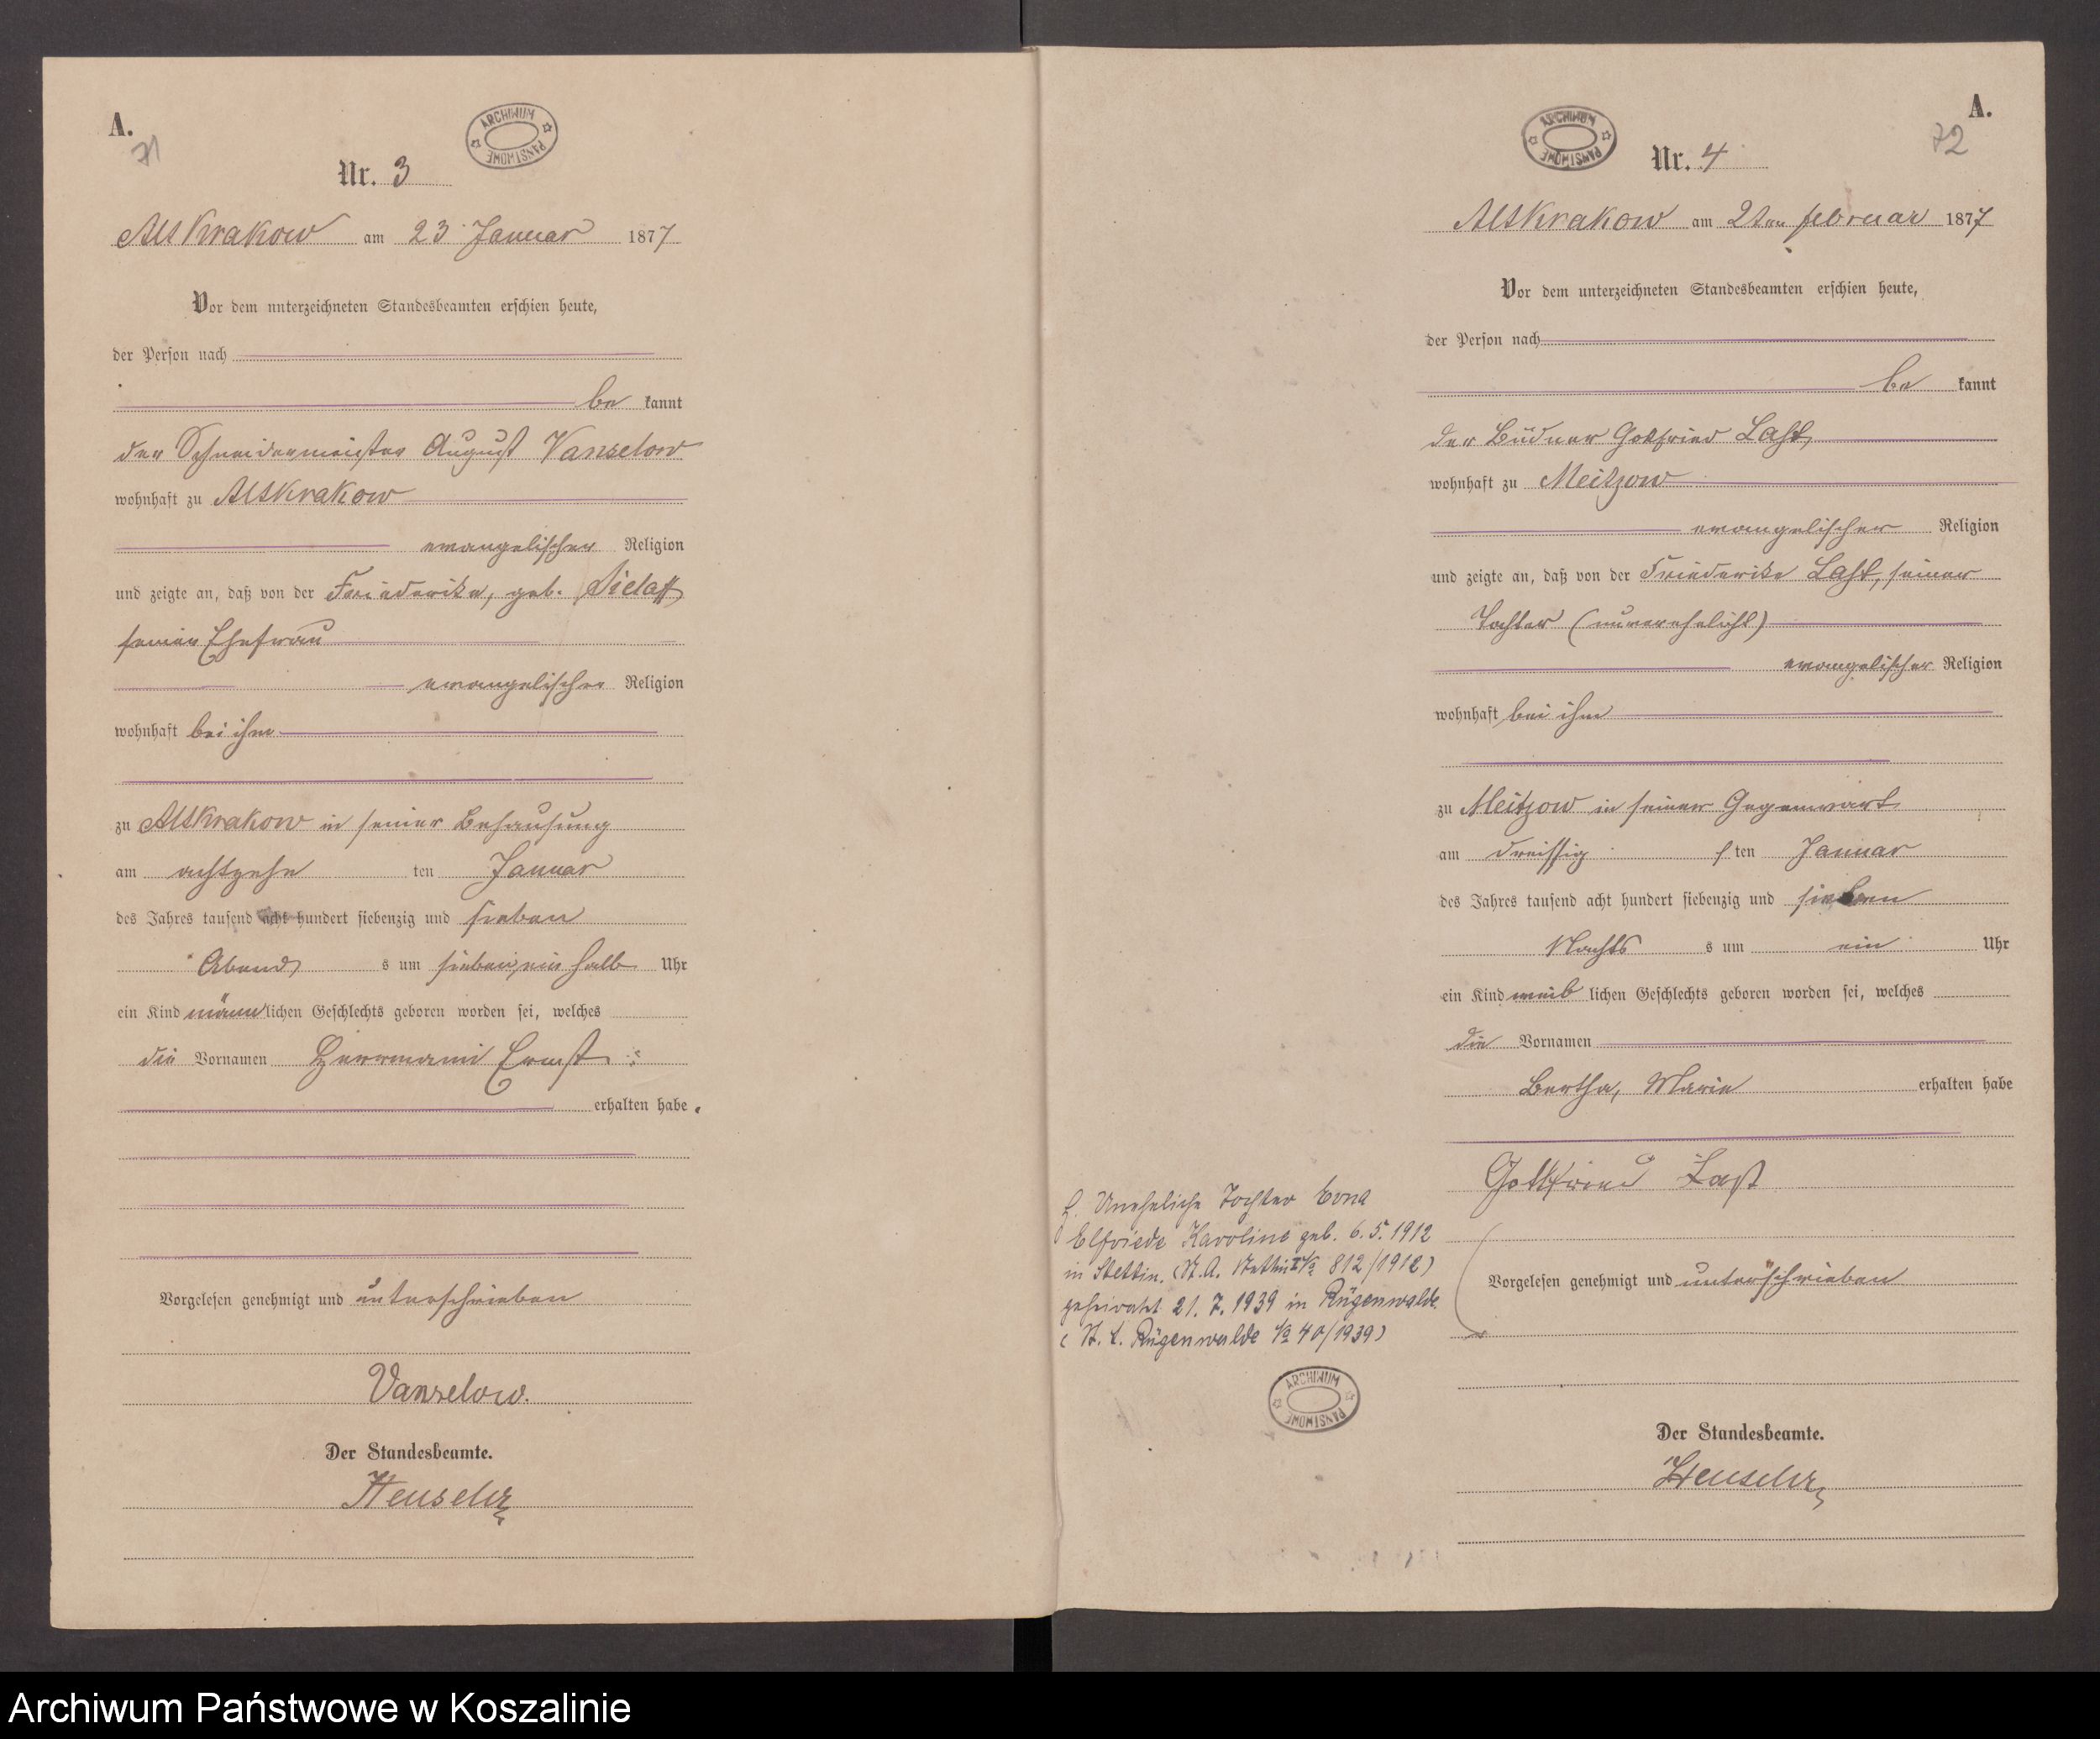 A.
71
ARCHIWUM PAŃSTWOWE
Nr. 3
Altkrakow am 23 Januar 1877
Vor dem unterzeichneten Standesbeamten erschien heute,
der Person nach
be kannt
der Schneidermeister August Vanselow
wohnhaft zu Altkrakow
evangelischer Religion
und zeigte an, daß von der Friederike, geb. Sielaff
seiner Ehefrau
evangelischer Religion
wohnhaft bei ihm
zu Altkrakow in seiner Behausung
am achtzehn ten Januar
des Jahres tausend acht hundert siebenzig und sieben
Abend s um sieben ein halb Uhr
ein Kind männ lichen Geschlechts geboren worden sei, welches
die Vornamen Herrmann Ernst
erhalten habe.
Vorgelesen genehmigt und unterschrieben
Vanselow.
Der Standesbeamte.
A.
72
ARCHIWUM PAŃSTWOWE
Nr. 4
Altkrakow am 2ten Februar 1877
Vor dem unterzeichneten Standesbeamten erschien heute,
der Person nach
be kannt
der Büdner Gottfried Last,
wohnhaft zu Meitzow
evangelischer Religion
und zeigte an, daß von der Friederike Last, seiner
Tochter (unverehelicht)
evangelischer Religion
wohnhaft bei ihm
zu Meitzow in seiner Gegenwart
am dreissig s ten Januar
des Jahres tausend acht hundert siebenzig und sieben
Nachts s um ein Uhr
ein Kind weib lichen Geschlechts geboren worden sei, welches
die Vornamen
Bertha, Marie erhalten habe
Gottfried Last
Vorgelesen genehmigt und unterschrieben
Der Standesbeamte.
Uneheliche Tochter Erna
Elfriede Karoline geb. 6.5.1912
in Stettin. (St. A. Stettin 812/1912)
geheiratet 21.7.1939 in Rügenwalde.
(St. A. Rügenwalde No 40/1939)
ARCHIWUM PAŃSTWOWE
Archiwum Państwowe w Koszalinie